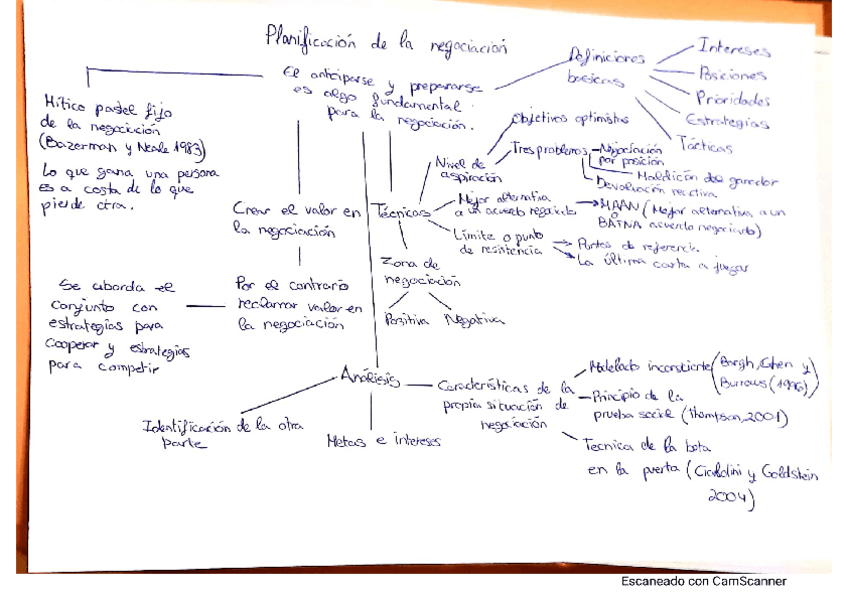 Planificación de la negociación
El anticiparse y prepararse
es algo fundamental
para la negociación.
Definiciones
basicas
Intereses
Posiciones
Prioridades
Estrategias
Tácticas
Mítico pastel fijo
de la negociación
(Bazerman y Neale 1983)
Lo que gana una persona
es a costa de lo que
pierde otra.
Crear el valor en
la negociación
Por el contrario
reclamar valor en
la negociación
Se aborda el
conjunto con
estrategias para
cooperar y estrategias
para competir
Técnicas
Nivel de
aspiración
Objetivos optimistas
Tres problemas
Negociación
por posición
Maldición del ganador
Devaluación reactiva
Mejor alternativa
a un acuerdo negociado
MAAN (Mejor alternativa a un
BATNA acuerdo negociado)
Límite o punto
de resistencia
Puntos de referencia
La última carta a jugar
Zona de
negociación
Positiva
Negativa
Análisis
Identificación de la otra
parte
Metas e intereses
Características de la
propia situación de
negociación
Modelado inconsciente (Bargh, Chen y
Burrows (1996)
Principio de la
prueba social (Thompson, 2001)
Tecnica de la bota
en la puerta (Cialdini y Goldstein
2004)
Escaneado con CamScanner